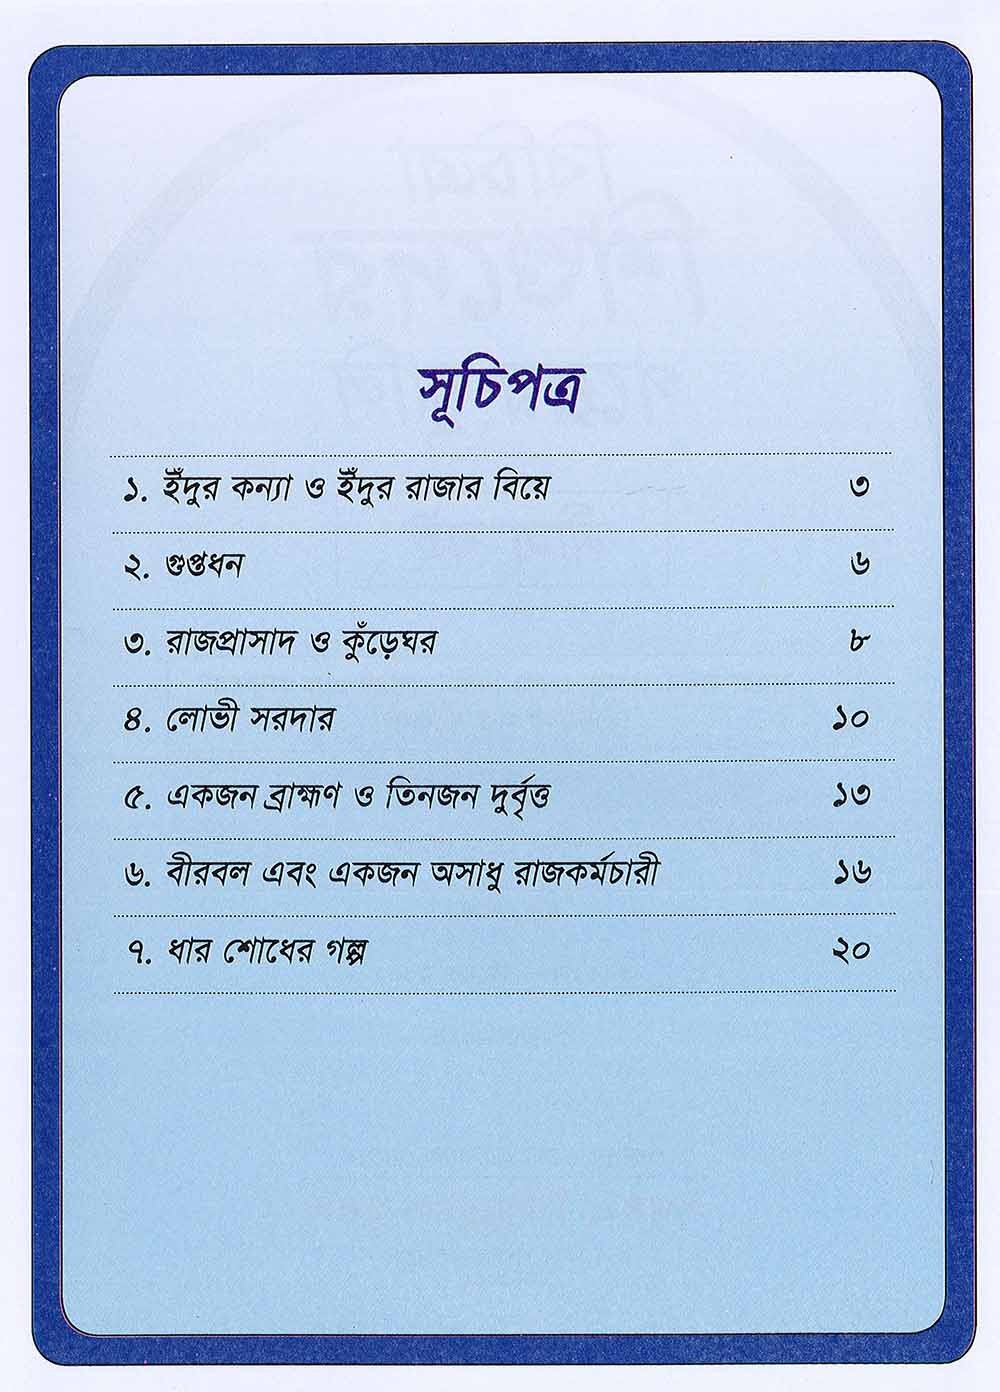 সূচিপত্র
১. ইঁদুর কন্যা ও ইঁদুর রাজার বিয়ে ৩
২. গুপ্তধন ৬
৩. রাজপ্রাসাদ ও কুঁড়েঘর ৮
৪. লোভী সরদার ১০
৫. একজন ব্রাহ্মণ ও তিনজন দুর্বৃত্ত ১৩
৬. বীরবল এবং একজন অসাধু রাজকর্মচারী ১৬
৭. ধার শোধের গল্প ২০